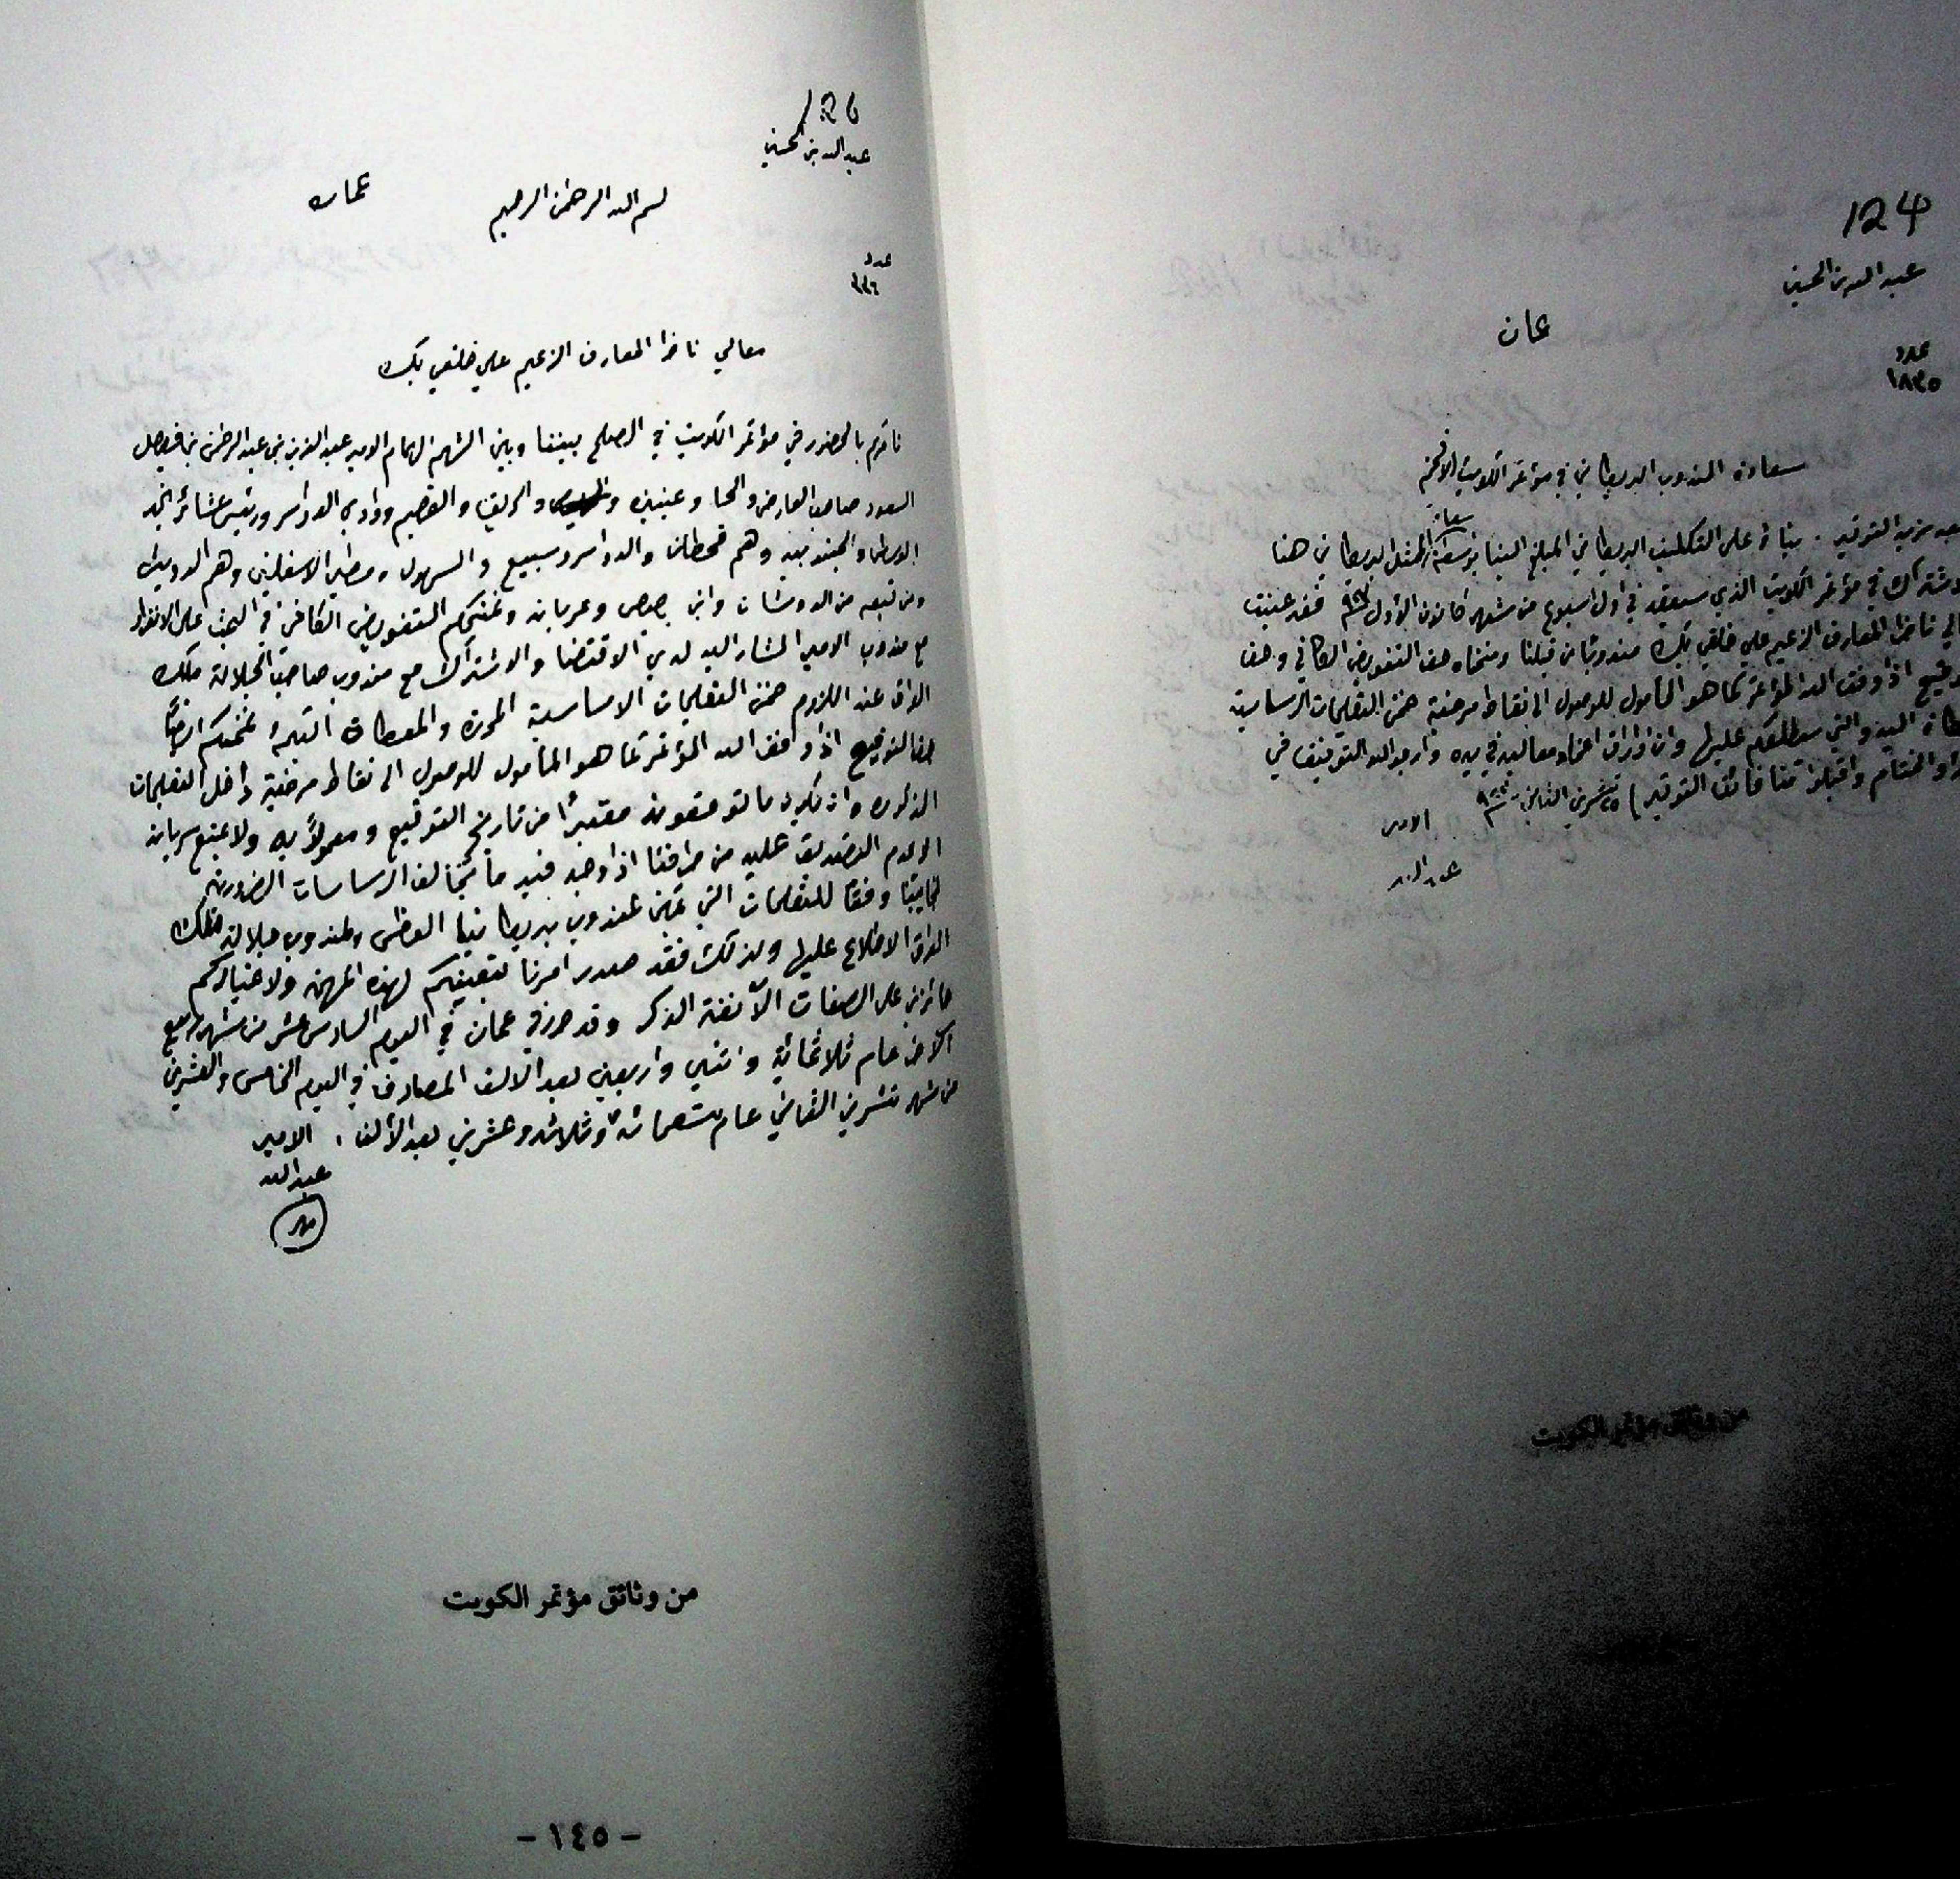 124
عبدالله بن الحسين
عمان
عدد
١٨٣٥
سعادة المندوب البريطاني في مؤتمر الكويت الافخم
سعادة
بعد مزيد التوقير . بناءً على التكليف البريطاني المبلغ الينا بواسطة الممثل البريطاني هنا
في مؤتمر الكويت الذي سينعقد في اول اسبوع من شهر كانون الاول فقد عينت
ناظر المعارف الزعيم علي خلقي بك مندوبًا من قبلنا ومنحناه حق التفويض الكافي وحق
اذا وفق الله المؤتمر كما هو المأمول للوصول الى نقاط مرضية ضمن التعليمات الاساسية
اليه والتي سيطلعكم عليها وان اوراق اعتماد معاليه في يده وارجو الله التوفيق في
والختام واقبلوا منا فائق التوقير ٢٥ تشرين الثاني
الامير
عبدالله
من وثائق مؤتمر الكويت
126
عبدالله بن الحسين
بسم الله الرحمن الرحيم
عمان
عدد
معالي ناظر المعارف الزعيم علي خلقي بك
نأمركم بالحضور في مؤتمر الكويت في الصلح بيننا وبين الشهم الهمام الامير عبد العزيز بن عبد الرحمن بن فيصل
السعود صاحب العارض والحسا وعنيزه والقصيم ووادي الدواسر ورئيس عشائر نجد
الوسطى والجنوبيه وهم قحطان والدواسر وسبيع والسهول ومطير الاسفلين وهم الدويش
ومن تبعه من الدوشان وابن بصيص وعربانه ونمنحكم التفويض الكافي في البحث على الانفراد
مع مندوب الامير المشار اليه لدى الاقتضا والاشتراك مع مندوب صاحب الجلالة ملك
العراق عند اللزوم ضمن التعليمات الاساسية المحررة والمعطاة اليكم نمنحكم ايضًا
حق التوقيع اذا وافق الله المؤتمر كما هو المأمول للوصول الى نقاط مرضية داخل التعليمات
المذكوره وان يكون ما توقعونه معتبرًا من تاريخ التوقيع ومعمولًا به ولا يمنع سريانه
الا عدم التصديق عليه من طرفنا اذا وجد فيه ما يخالف الاساسات الضرورية
لجانبنا وفقًا للتعليمات التي يمكن لمندوب بريطانيا العظمى ولمندوب جلالة ملك
العراق الاطلاع عليها ولذلك فقد صدر امرنا بتعيينكم لهذه المهمة ولاعتباركم
حائزين على الصفات الآنفة الذكر وقد حرر في عمان في اليوم السادس عشر من شهر ربيع
الاخر عام ثلاثمائة واثنين واربعين بعد الالف المصادف في اليوم الخامس والعشرين
من شهر تشرين الثاني عام تسعمائة وثلاثة وعشرين بعد الألف . الامير
عبدالله
مهر
من وثائق مؤتمر الكويت
- ١٤٥ -